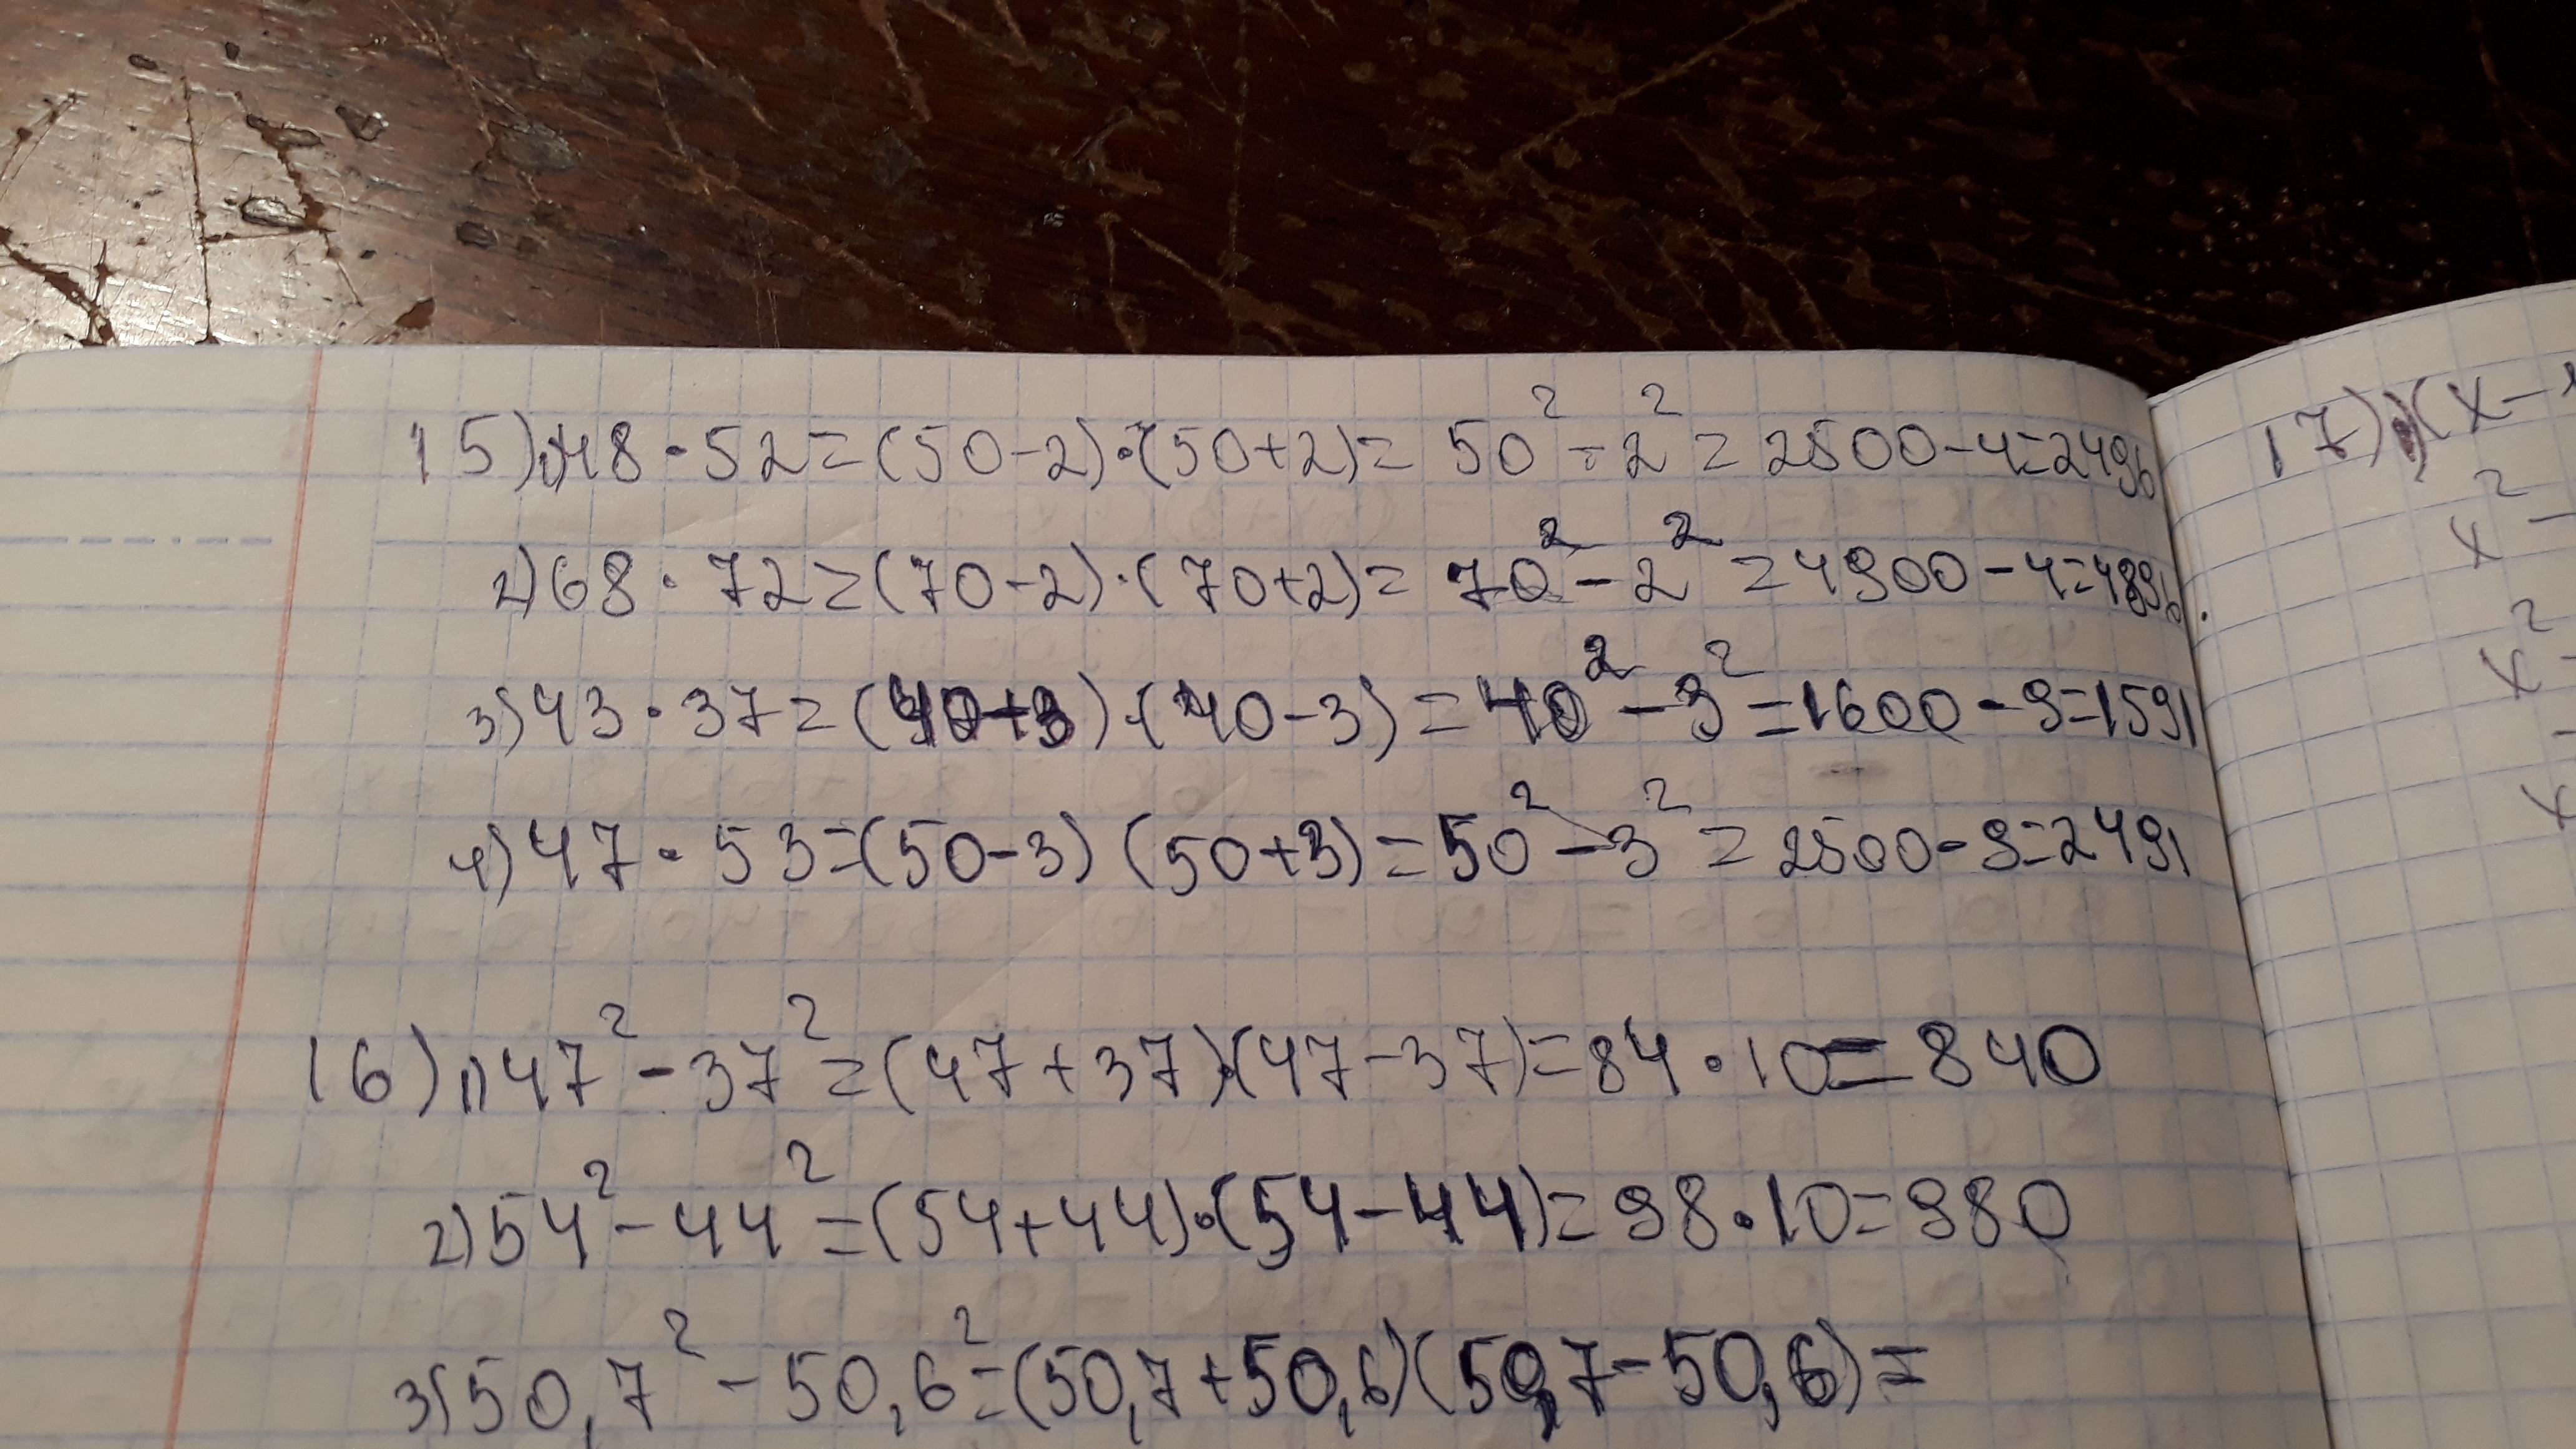 15) 1) 48 · 52 = (50-2) · (50+2) = 50² - 2² = 2500 - 4 = 2496
2) 68 · 72 = (70-2) · (70+2) = 70² - 2² = 4900 - 4 = 4896
3) 43 · 37 = (40+3) · (40-3) = 40² - 3² = 1600 - 9 = 1591
4) 47 · 53 = (50-3) (50+3) = 50² - 3² = 2500 - 9 = 2491
16) 1) 47² - 37² = (47+37) · (47-37) = 84 · 10 = 840
2) 54² - 44² = (54+44) · (54-44) = 98 · 10 = 980
3) 50,7² - 50,6² = (50,7+50,6) (50,7-50,6) =
17) 1) (x-
x² -
x²
x